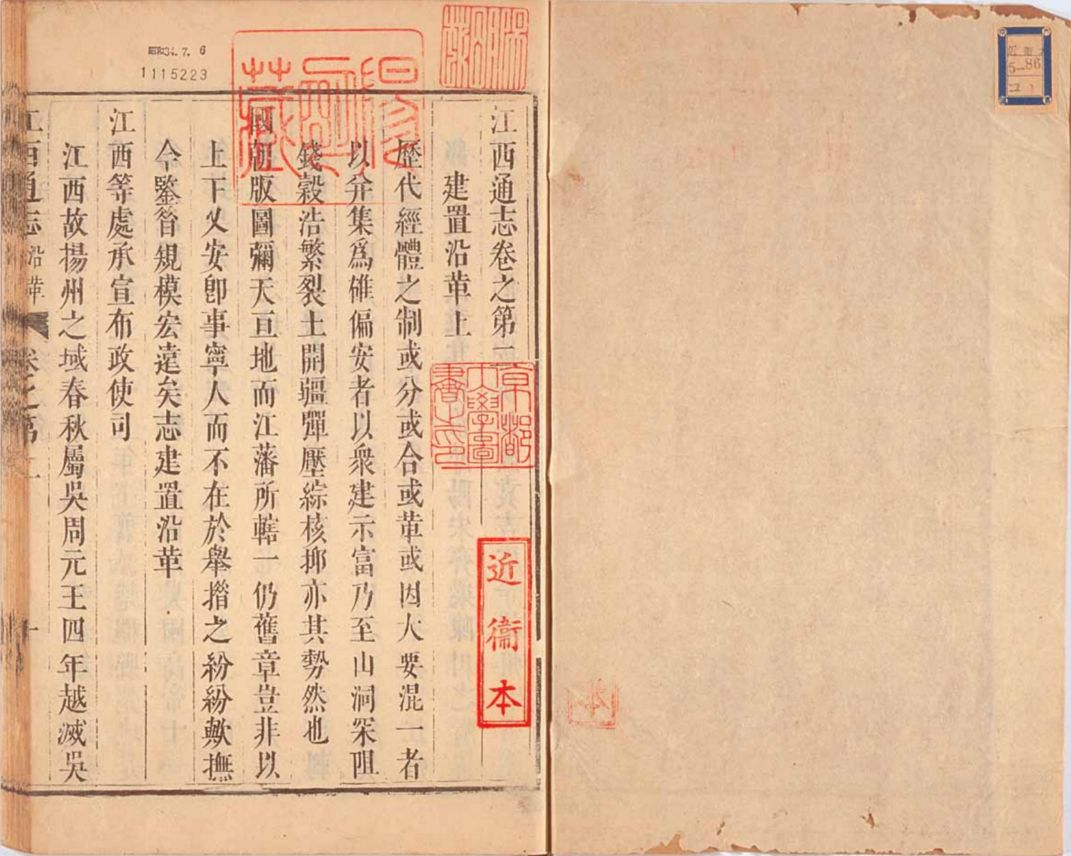 江西通志卷之第一
建置沿革上
歷代經體之制或分或合或革或因大要混一者
以弁集爲碓偏安者以衆建示富乃至山洞罙阻
錢穀浩繁裂土開疆彈壓綜核抑亦其勢然也
國朝版圖彌天亘地而江藩所轄一仍舊章豈非以
上下乂安卽事寧人而不在於舉措之紛紛歟撫
今鑒昝規模宏遠矣志建置沿革
江西等處承宣布政使司
江西故揚州之域春秋屬吳周元王四年越滅吳
江西通志
沿革
卷之第一
一
京都
大學圖
書之印
近衞本
昭和34. 7. 6
1115223
5-86
コ 1